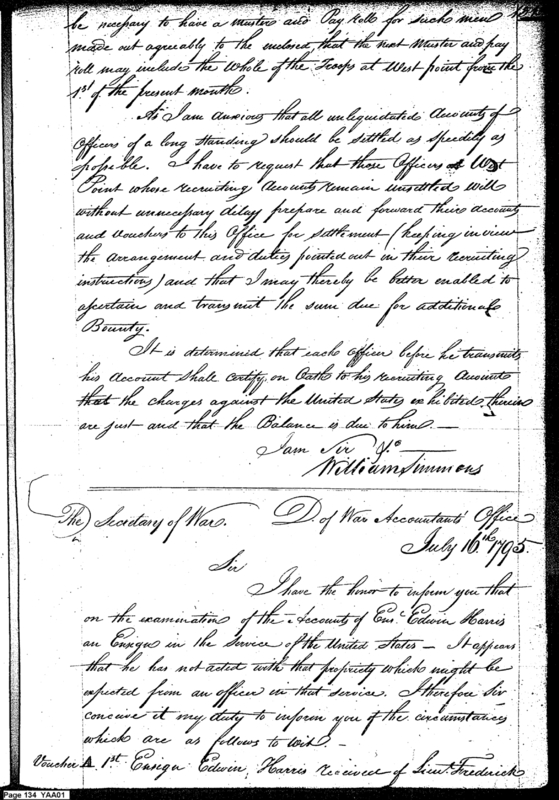 be necessary to have a Muster and Pay Roll for such men
made out agreeably to the enclosed, that the next Muster and pay
roll may include the Whole of the Troops at West point from the
1st of the present month.
As I am anxious that all unliquidated Accounts of
Officers of a long standing should be settled as speedily as
possible. I have to request that those Officers at West
Point whose recruiting Accounts remain unsettled will
without unnecessary delay prepare and forward their accounts
and Vouchers to this Office for settlement (keeping in view
the arrangement and duties pointed out in their recruiting
instructions) and that I may thereby be better enabled to
ascertain and transmit the sum due for additional
Bounty.
It is determined that each Officer before he transmits
his Account shall certify, on Oath to his recruiting Accounts
that the charges against the United States exhibited therein
are just and that the Balance is due to him.—
I am Sir &c—
William Simmons
The Secretary of War. D. of War Accountants Office
July 16th 1795.
Sir
I have the honor to inform you that
on the examination of the Accounts of Ens. Edwin Harris
an Ensign in the Service of the United States — It appears
that he has not acted with that propriety which might be
expected from an officer in that service. I therefore Sir
conceive it my duty to inform you of the circumstances
which are as follows to wit.—
Voucher A 1st Ensign Edwin Harris received of Lieut. Frederick
Page 134 YAA01